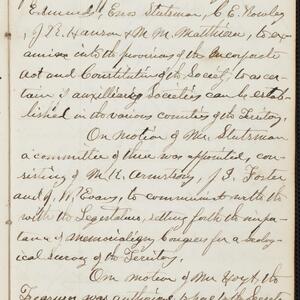 Edmunds, Enos Stutsman, C. E. Rowley
, J. R. Hanson & M. M. Matthiesen, to ex-
amine into the provisions of the Incorporate
Act and Constitution of the Society, to as cer-
tain if auxilliary Societies can be estab-
lished in the various counties of the Territory.
On Motion of Mr. Stutsman
a committee of three was appointed, con-
sisting of M. K. Armstrong, J. S. Foster
and J. W. Evans to communicate with the
with the Legislature, setting forth the impor-
tance of memorializing Congress for a Geolog-
ical Survey of the Territory.
On motion of Mr Hoyt the
Treasurer was authorized to pay to the Secreta